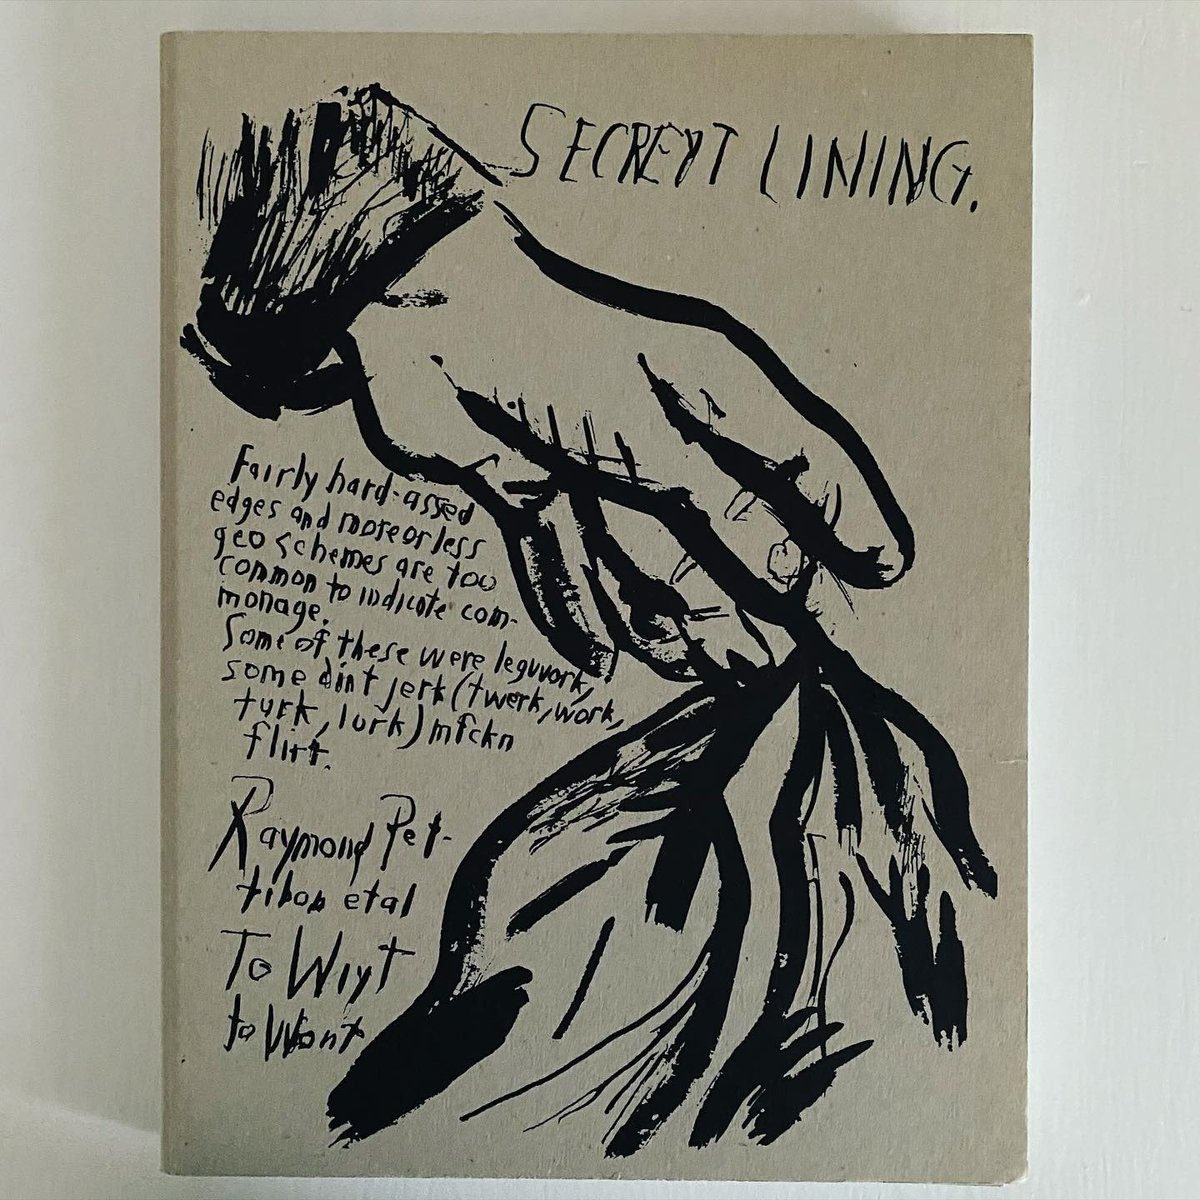 SECREYT LINING.
Fairly hard-assed
edges and more or less
geo schemes are too
common to indicate com-
monage.
Some of these were legwork,
some dint jerk (twerk, work,
turk, lurk) mfckn
flirt.
Raymond Pet-
tibon etal
To Wiyt
to Want